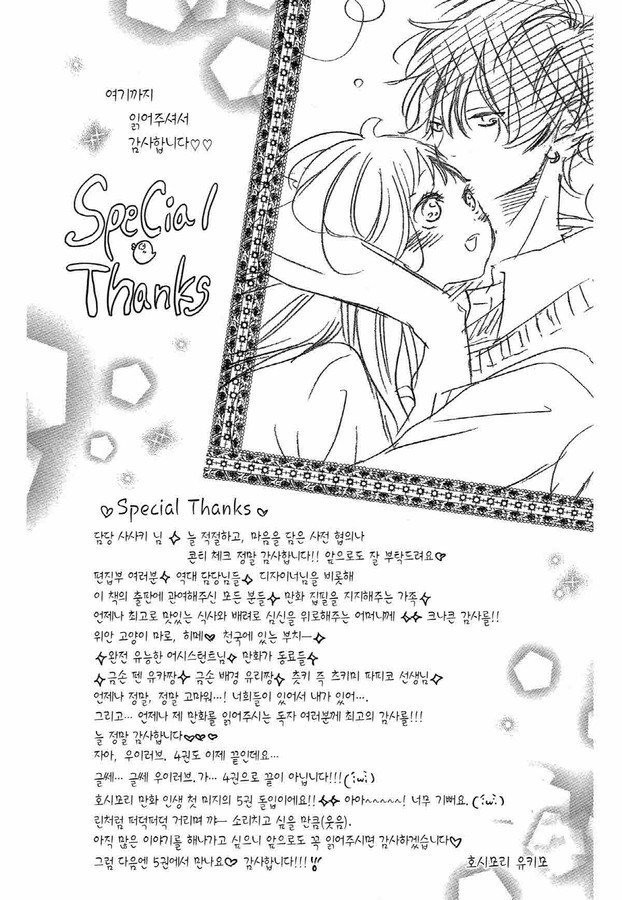 여기까지
읽어주셔서
감사합니다♡♡
Special
Thanks
♡Special Thanks♡
담당 사사키 님✧ 늘 적절하고, 마음을 담은 사전 협의나
콘티 체크 정말 감사합니다!! 앞으로도 잘 부탁드려요♡
편집부 여러분✧ 역대 담당님들✧ 디자이너님을 비롯해
이 책의 출판에 관여해주신 모든 분들✧ 만화 집필을 지지해주는 가족✧
언제나 최고로 맛있는 식사와 배려로 심신을 위로해주는 어머니께 ✧✧ 크나큰 감사를!!
위안 고양이 마로, 히메♡ 천국에 있는 부치—✧
✧완전 유능한 어시스턴트님✧ 만화가 동료들✧
✧금손 펜 유카짱✧ 금손 배경 유리짱✧ 츳키 즉 츠키미 파피코 선생님✧
언제나 정말, 정말 고마워…! 너희들이 있어서 내가 있어….
그리고… 언제나 제 만화를 읽어주시는 독자 여러분께 최고의 감사를!!!
늘 정말 감사합니다♡♡♡
자아, 우이러브. 4권도 이제 끝인데요…
글쎄… 글쎄 우이러브.가… 4권으로 끝이 아닙니다!!!(;ω;)
호시모리 만화 인생 첫 미지의 5권 돌입이에요!!✧✧ 아아~~~~~! 너무 기뻐요.(;ω;)
린처럼 퍼덕퍼덕 거리며 꺄— 소리치고 싶을 만큼(웃음).
아직 많은 이야기를 해나가고 싶으니 앞으로도 꼭 읽어주시면 감사하겠습니다♡
그럼 다음엔 5권에서 만나요♡ 감사합니다!!!
호시모리 유키모